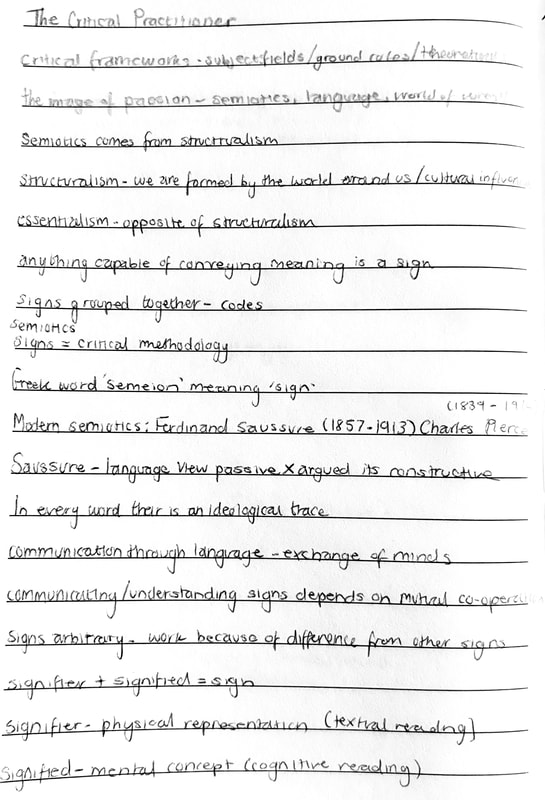 The Critical Practitioner
critical frameworks - subject fields/ground rules/
the image of passion - semiotics, language, world of
Semiotics comes from structrualism
Structuralism - we are formed by the world around us/cultural
essentialism - opposite of structuralism
anything capable of conveying meaning is a sign
signs grouped together - codes
semiotics
signs = critical methodology
Greek word 'semeion' meaning 'sign'
(1839 -
Modern semiotics: Ferdinand Saussure (1857-1913) Charles Pierce
Saussure - language view passive X argued its constructive
In every word their is an ideological trace
communication through language - exchange of minds
communicating/understanding signs depends on mutual
Signs arbitrary - work because of difference from other signs
signifier + signified = sign
signifier - physical representation (textual reading)
signified - mental concept (cognitive reading)